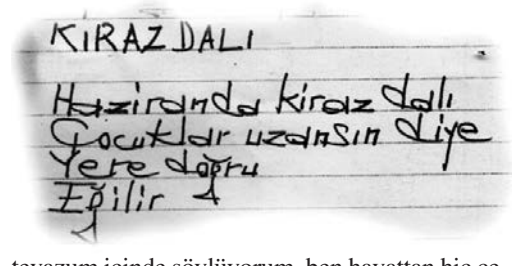 KİRAZ DALI
Haziranda kiraz dalı
Çocuklar uzansın diye
Yere doğru
Eğilir
tevazum içinde söylüyorum, ben hayattan hiç